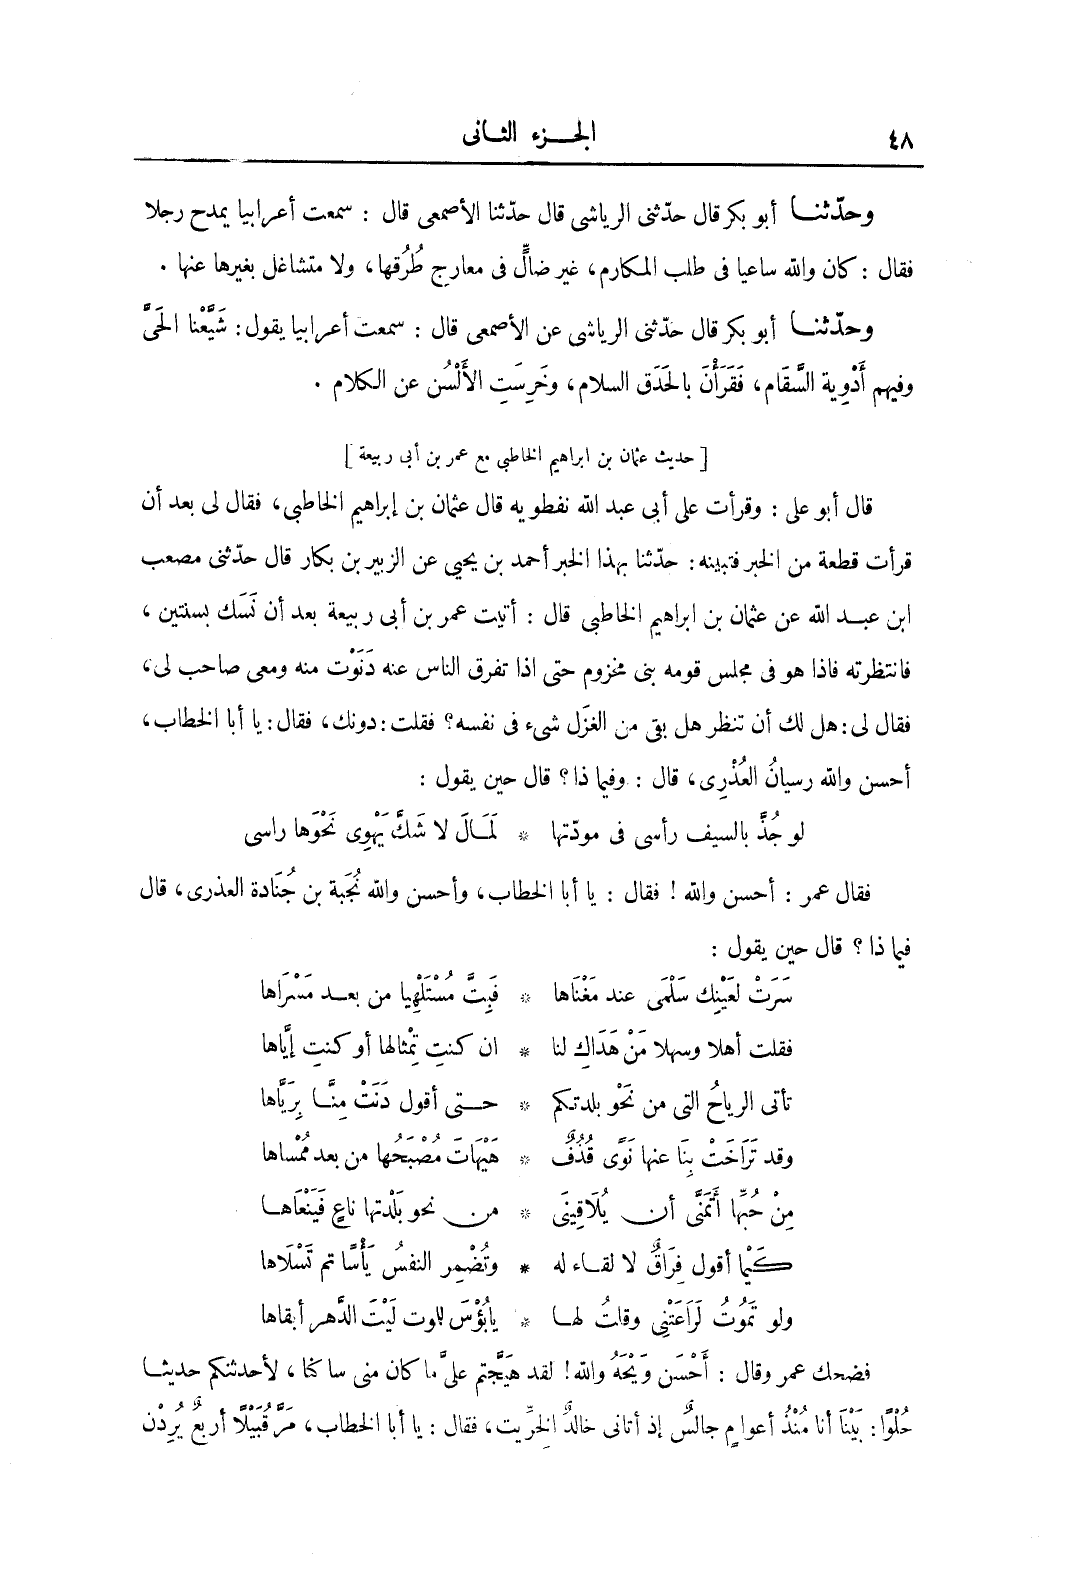 ٤٨ الجـزء الثـانى
وحدّثنـا أبو بكر قال حدّثنى الرياشى قال حدّثنا الأصمعى قال : سمعت أعرابيا يمدح رجلا
فقال : كان والله ساعيا فى طلب المكارم، غير ضالٍّ فى معارج طُرُقها، ولا متشاغل بغيرها عنها .
وحدّثنـا أبو بكر قال حدّثنى الرياشى عن الأصمعى قال : سمعت أعرابيا يقول : شَيَّعْنا الحَىَّ
وفيهم أَدْوِية السَّقَام، فَقَرَأْنَ بالحَدَق السلام، وخَرِسَتِ الأَلْسُن عن الكلام .
[ حديث عثمان بن ابراهيم الخاطبى مع عمر بن أبى ربيعة ]
قال أبو على : وقرأت على أبى عبد الله نفطويه قال عثمان بن إبراهيم الخاطبى، فقال لى بعد أن
قرأت قطعة من الخبر فتبينه : حدّثنا بهذا الخبر أحمد بن يحيى عن الزبير بن بكار قال حدّثنى مصعب
ابن عبـد الله عن عثمان بن ابراهيم الخاطبى قال : أتيت عمر بن أبى ربيعة بعد أن نَسَك بسنتين ،
فانتظرته فاذا هو فى مجلس قومه بنى مخزوم حتى اذا تفرق الناس عنه دَنَوْت منه ومعى صاحب لى،
فقال لى : هل لك أن تنظر هل بقى من الغَزَل شىء فى نفسه؟ فقلت : دونك، فقال : يا أبا الخطاب،
أحسن والله رسيانُ العُذْرِى، قال : وفيما ذا ؟ قال حين يقول :
لو جُذَّ بالسيف رأسى فى مودّتها * لَمَـالَ لا شَكَّ يَهْوِى نَحْوَها راسى
فقال عمر : أحسن والله ! فقال : يا أبا الخطاب، وأحسن والله نُجَبة بن جُنَادة العذرى، قال
فيما ذا ؟ قال حين يقول :
سَرَتْ لعَيْنِك سَلْمَى عند مَغْنَاها * فَبِتَّ مُسْتَلْهِيا من بعـد مَسْرَاها
فقلت أهلا وسهلا مَنْ هَدَاكِ لنا * ان كنتِ تِمْثالها أو كنتِ إيَّاها
تأتى الرياحُ التى من نَحْو بلدتكم * حـتى أقول دَنَتْ مِنَّـا بِرَيَّاها
وقد تَرَاخَتْ بِنَا عنها نَوًى قُذُفٌ * هَيْهَاتَ مُصْبَحُها من بعد مُمْساها
مِنْ حُبِّها أَتَمَنَّى أن يُلَاقِيَنى * من نحو بَلْدتها ناعٍ فَيَنْعَاهـا
كَيْما أقول فِرَاقٌ لا لقـاء له * وتُضْمِر النفسُ يَأْسًا ثم تَسْلَاها
ولو تَمُوتُ لَرَاعَتْنِى وقلتُ لهـا * يابُؤْسَ للموت لَيْتَ الدَّهر أبقاها
فضحك عمر وقال : أَحْسَن وَيْحَهُ والله ! لقد هَيَّجتم علىَّ ما كان منى ساكنا ، لأحدثنكم حديثـا
حُلْوًا : بَيْنَا أنا مُنْذُ أعوامٍ جالسٌ إذ أتانى خالدٌ الخِرِّيت، فقال : يا أبا الخطاب، مَرَّ قُبَيْلًا أربعٌ يُرِدْن